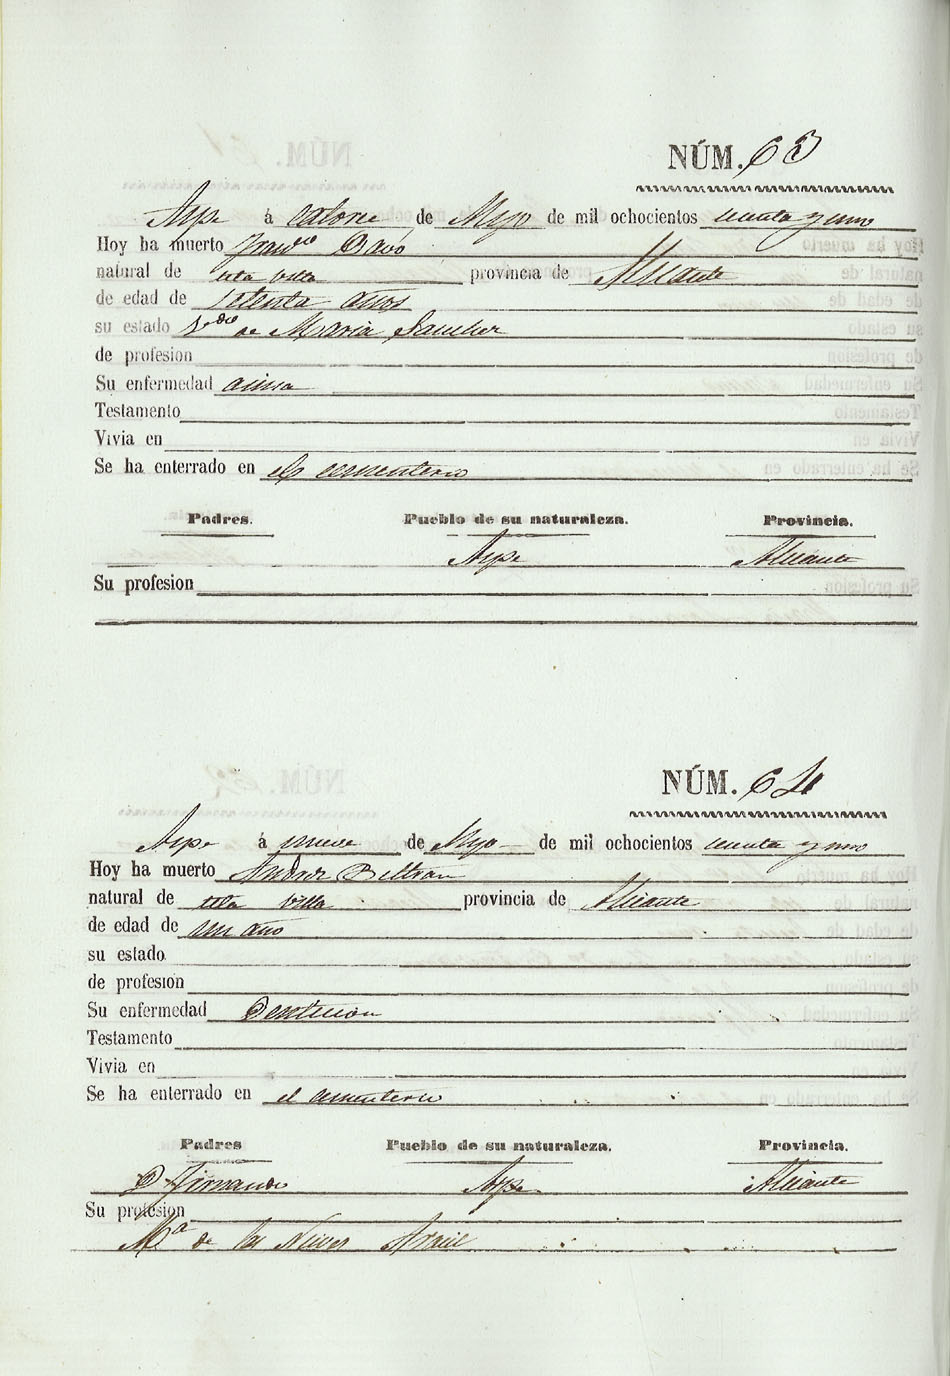 NÚM. 63
Aspe á catorce de Mayo de mil ochocientos cuenta y uno
Hoy ha muerto Bravo
natural de esta villa provincia de Alicante
de edad de setenta años
su estado de Maria Sanchez
de profesion
Su enfermedad asma
Testamento
Vivia en
Se ha enterrado en el cementerio
Padres. Pueblo de su naturaleza. Provincia.
Aspe Alicante
Su profesion
NÚM. 64
Aspe á nueve de Mayo de mil ochocientos cuenta y uno
Hoy ha muerto Andres Beltran
natural de esta villa provincia de Alicante
de edad de un año
su estado
de profesion
Su enfermedad Denticion
Testamento
Vivia en
Se ha enterrado en el cementerio
Padres Pueblo de su naturaleza. Provincia.
D. Fernando Aspe Alicante
Su profesion
Mª de las Nieves